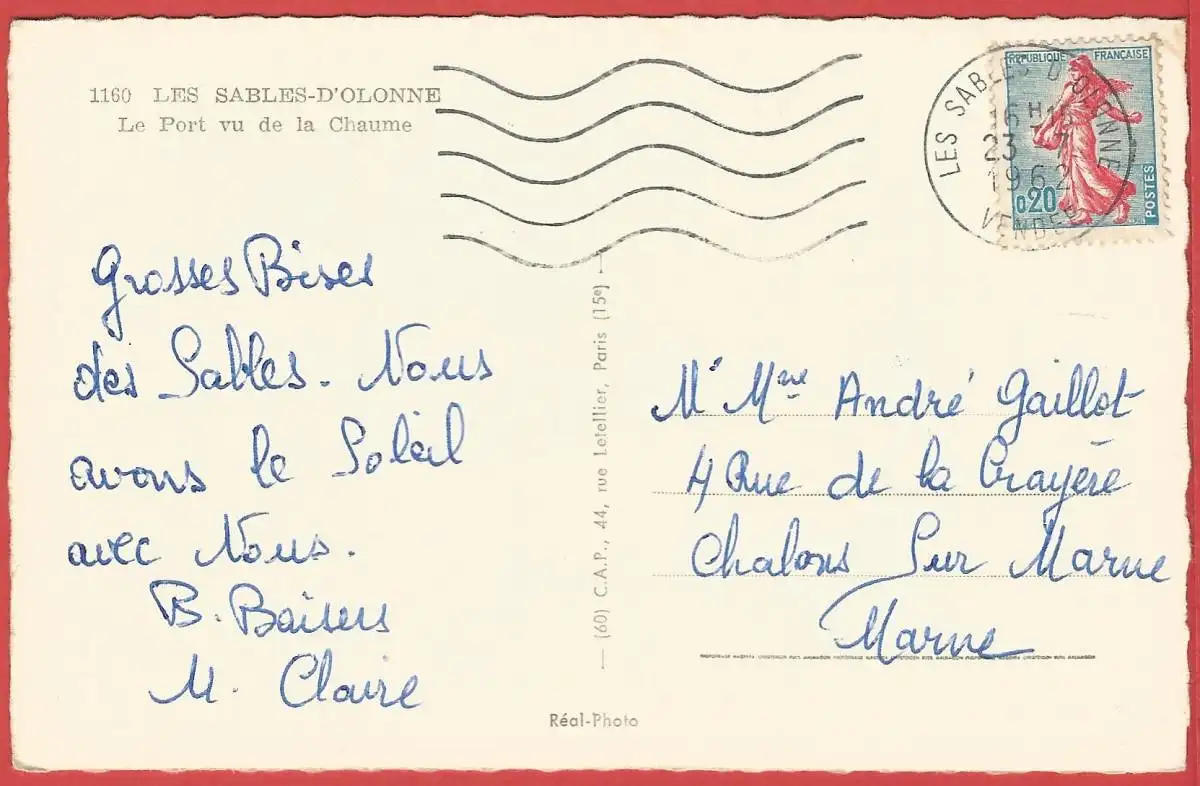 1160 LES SABLES-D'OLONNE
Le Port vu de la Chaume
LES SABLES D'OLONNE
16H15
23-7
1962
VENDEE
REPUBLIQUE FRANÇAISE
0,20
POSTES
Grosses Bises
des Sables. Nous
avons le Soleil
avec Nous.
B. Baisers
M. Claire
(60) C.A.P., 44, rue Letellier, Paris (15e)
Mr Mme André Gaillot
4 Rue de la Crayère
Chalons Sur Marne
Marne
Réal-Photo